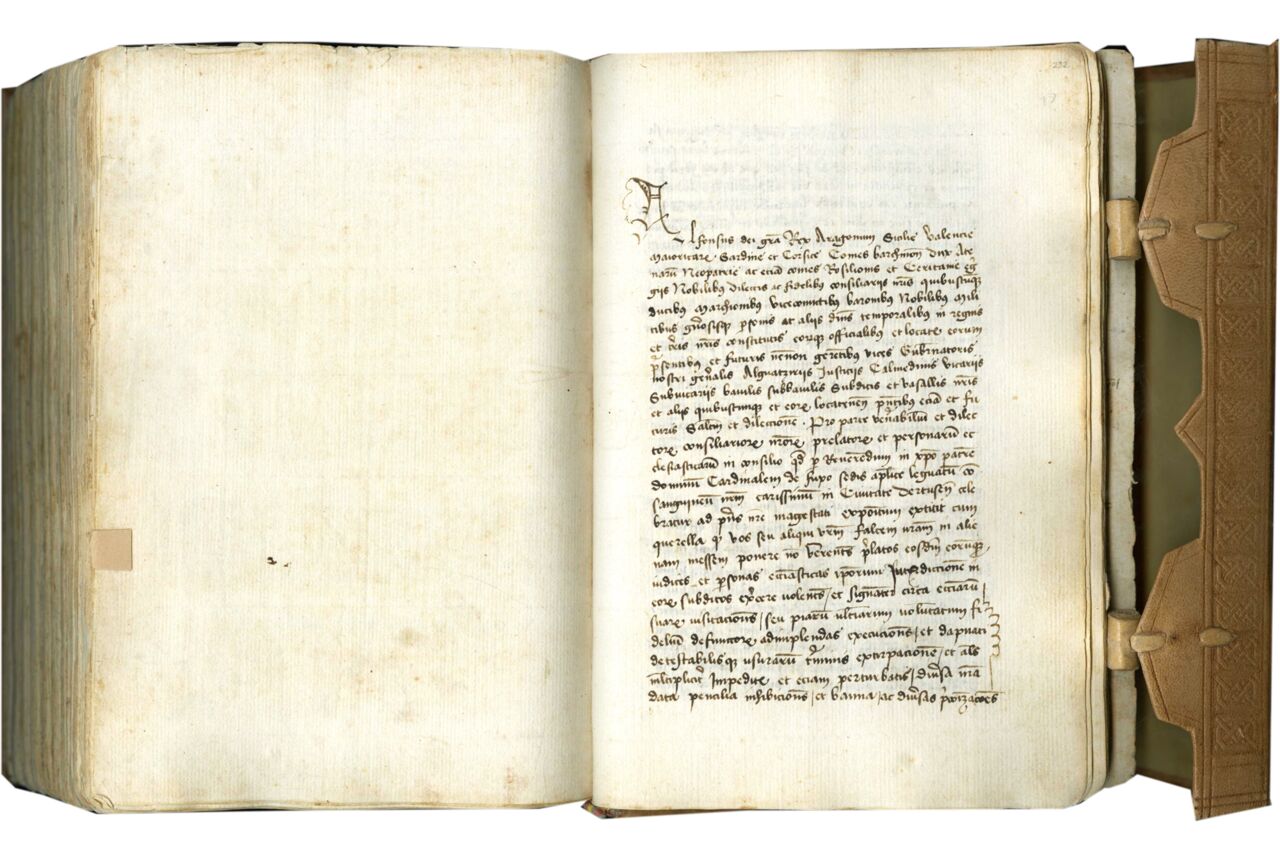 232
Alfonsus dei gra Rex Aragonum Sicilie Valencie
Maioricare Sardinie et Corsice Comes barchinon Dux Ate
naru Neopatrie ac eciam comes Rosilionis et Ceritanie egre
giis Nobilibus dilectis ac fidelibus consiliariis nris quibuscumque
ducibus Marchionibus vicecomitibus baronibus Nobilibus Mili
tibus generosisque personis ac aliis dnis temporalibus in regnis
et terris nris constitutis eorumque officialibus et locate eorum
presentibus et futuris necnon gerentibus vices Gubernatoris
nostri generalis Alguatziriis Justiciis Calmedinis vicariis
Subvicariis baiulis subbaiulis Subditis et vasallis nris
et aliis quibuscumque et eore locatenen presentibus eciam et fu
turis Saltem et dileccione. Pro parte venerabilium et dilec
tore consiliariore nrore prelatore et personaru ec
clesiasticaru in consilio qd per Reverendum in xpo patre
dominum Cardinalem de fuxo sedis aplice legatum co
sanguineu nrm carissimu in Civitate Dertusen cele
bratur ad pns nre magestati expositum extitit cum
querella q vos seu aliqui vrm falcem vram in alie
nam messem ponere no verents prelatos eosdem eorumque
iudices et personas ecciasticas ipsorum Jurisdictione in
eore subditos exercere volents et signater circa ecciaru
suare visitacions / seu piaru ultiarum voluntatum fi
deliu defunctore adimplendas execucions / et dapnati
detestabilisque usuraru criminis extirpacione / et als
mltiplicit Impedite et eciam perturbatis / diversa ma
data penalia inhibicions / et banna / ac diversas pconizacoes